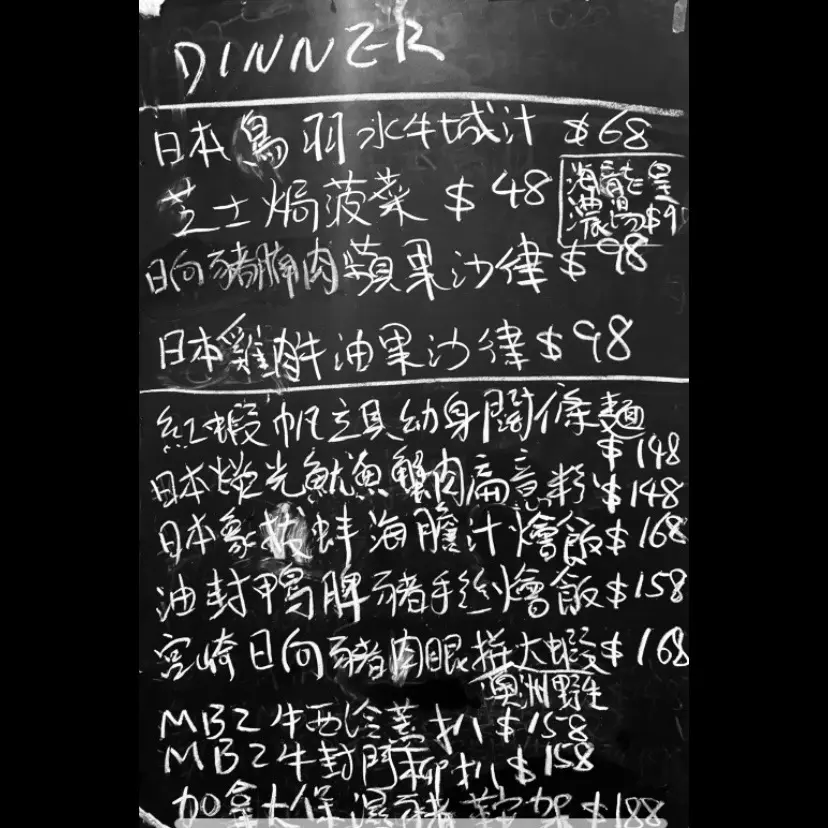 DINNER
日本鳥羽水牛城汁 $68
芝士焗菠菜 $48
海龍皇
濃湯 $9
日向豬腩肉蘋果沙律 $98
日本雞肉牛油果沙律 $98
紅蝦帆立貝幼身闊條麵
$148
日本螢光魷魚蟹肉扁意粉 $148
日本象拔蚌海膽汁燴飯 $168
油封鴨脾豬手燴飯 $158
宮崎日向豬肉眼拼大蝦 $168
澳州野生
MB2牛西冷蓋扒 $158
MB2牛封門柳扒 $158
加拿大保濕豬鞍架 $188